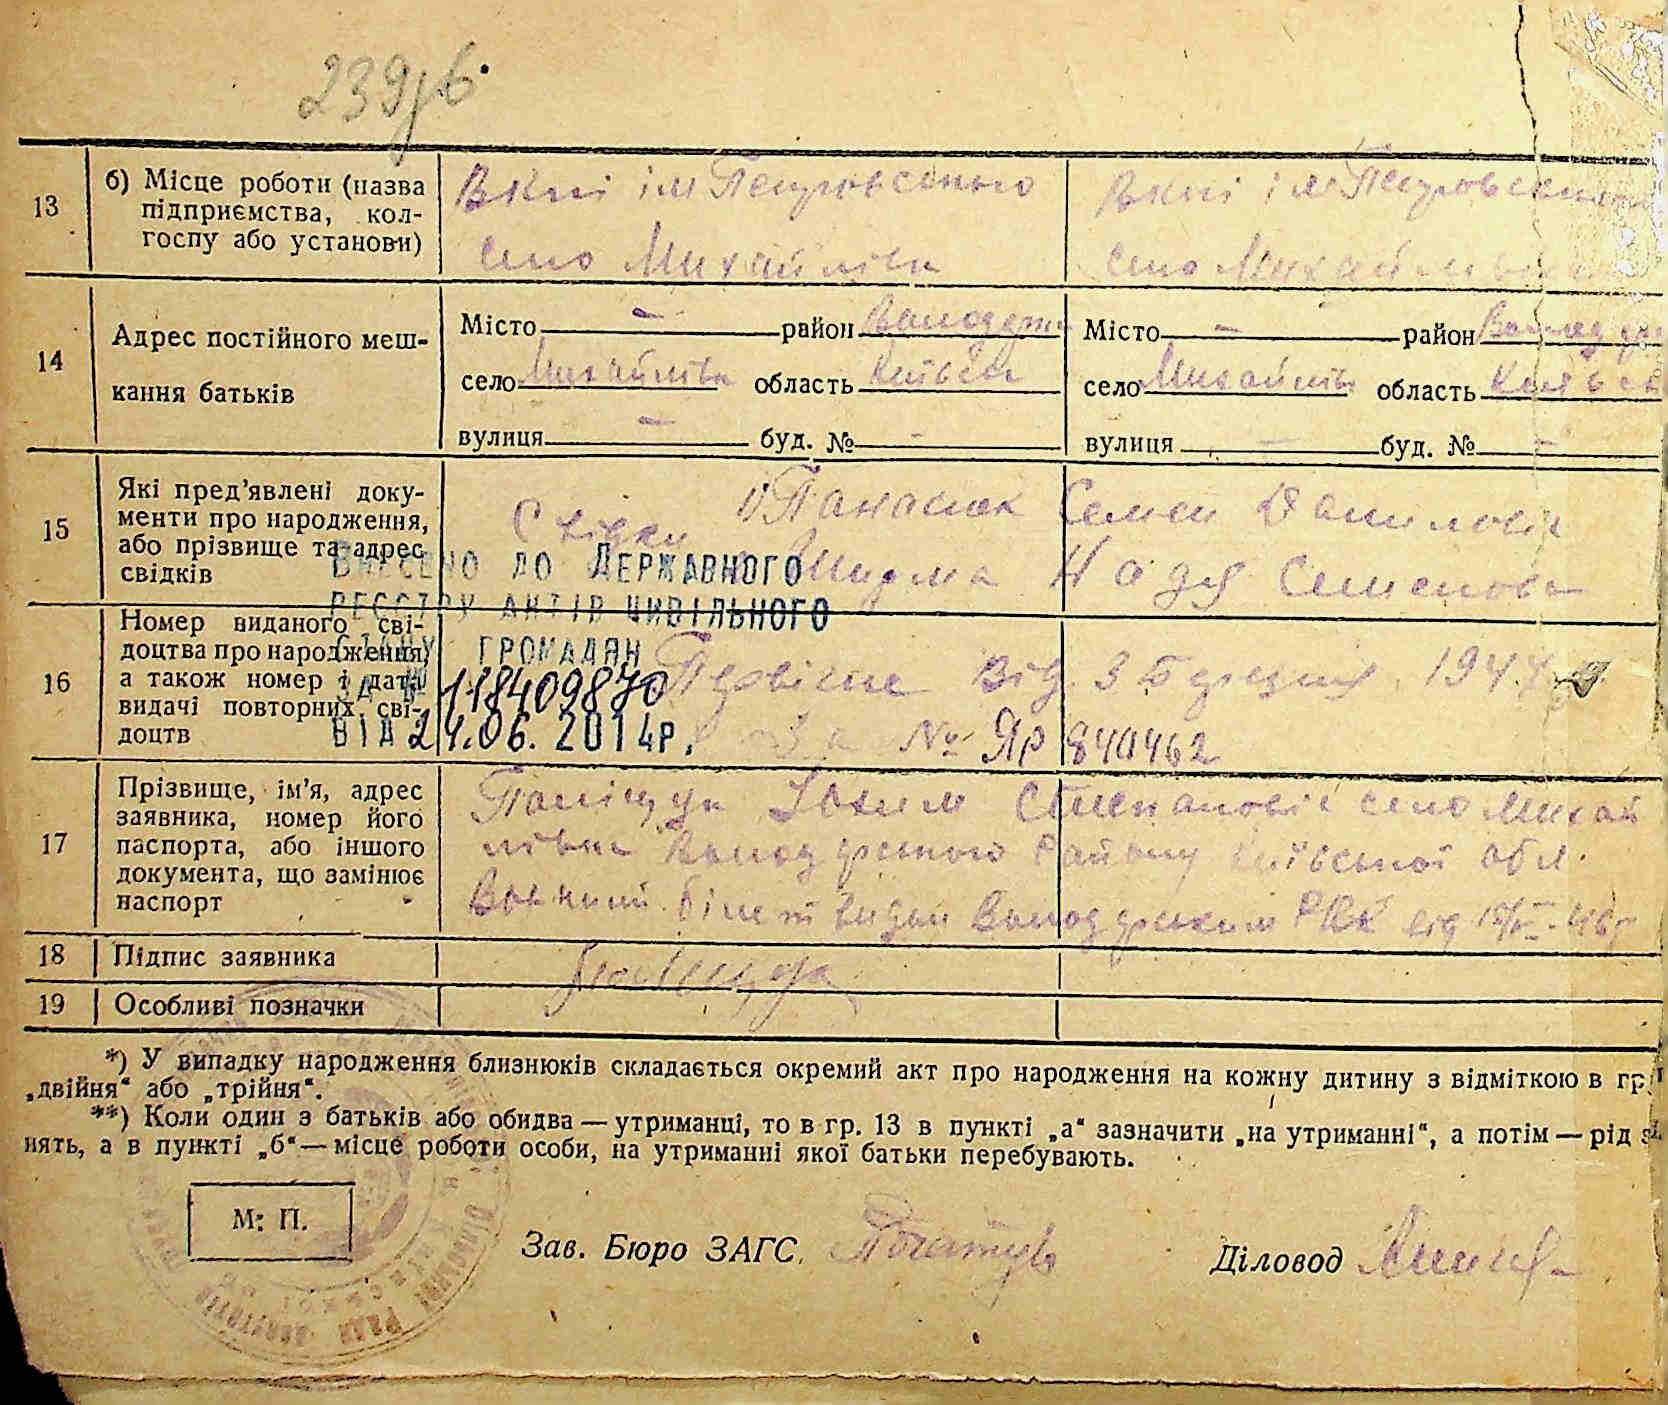 239
13
б) Місце роботи (назва
підприємства, кол-
госпу або установи)
ім Петровського
село Михайлівка
ім Петровського
село Михайлівка
14
Адрес постійного меш-
кання батьків
Місто — район Володарськ
село Михайлівка область Київська
вулиця — буд. № —
Місто — район Володарськ
село Михайлівка область Київськ
вулиця — буд. № —
15
Які пред'явлені доку-
менти про народження,
або прізвище та адрес
свідків
Свідки Панасюк Семен Данилович
Надя Семенова
Внесено до Державного
реєстру актів цивільного
стану громадян
за № 118409870
від 24.06.2014р.
16
Номер виданого сві-
доцтва про народження,
а також номер і дата
видачі повторних сві-
доцтв
Первісне від 3 Березня 1947
за № Яр 840462
17
Прізвище, ім'я, адрес
заявника, номер його
паспорта, або іншого
документа, що замінює
паспорт
Поліщук Юхим Степанович село Михай
лівка Володарського району Київської обл.
Воєнний білет видан Володарським РВК від
18
Підпис заявника
19
Особливі позначки
*) У випадку народження близнюків складається окремий акт про народження на кожну дитину з відміткою в гр.
„двійня“ або „трійня“.
**) Коли один з батьків або обидва — утриманці, то в гр. 13 в пункті „а“ зазначити „на утриманні“, а потім — рід за-
нять, а в пункті „б“ — місце роботи особи, на утриманні якої батьки перебувають.
М. П.
Зав. Бюро ЗАГС
Діловод